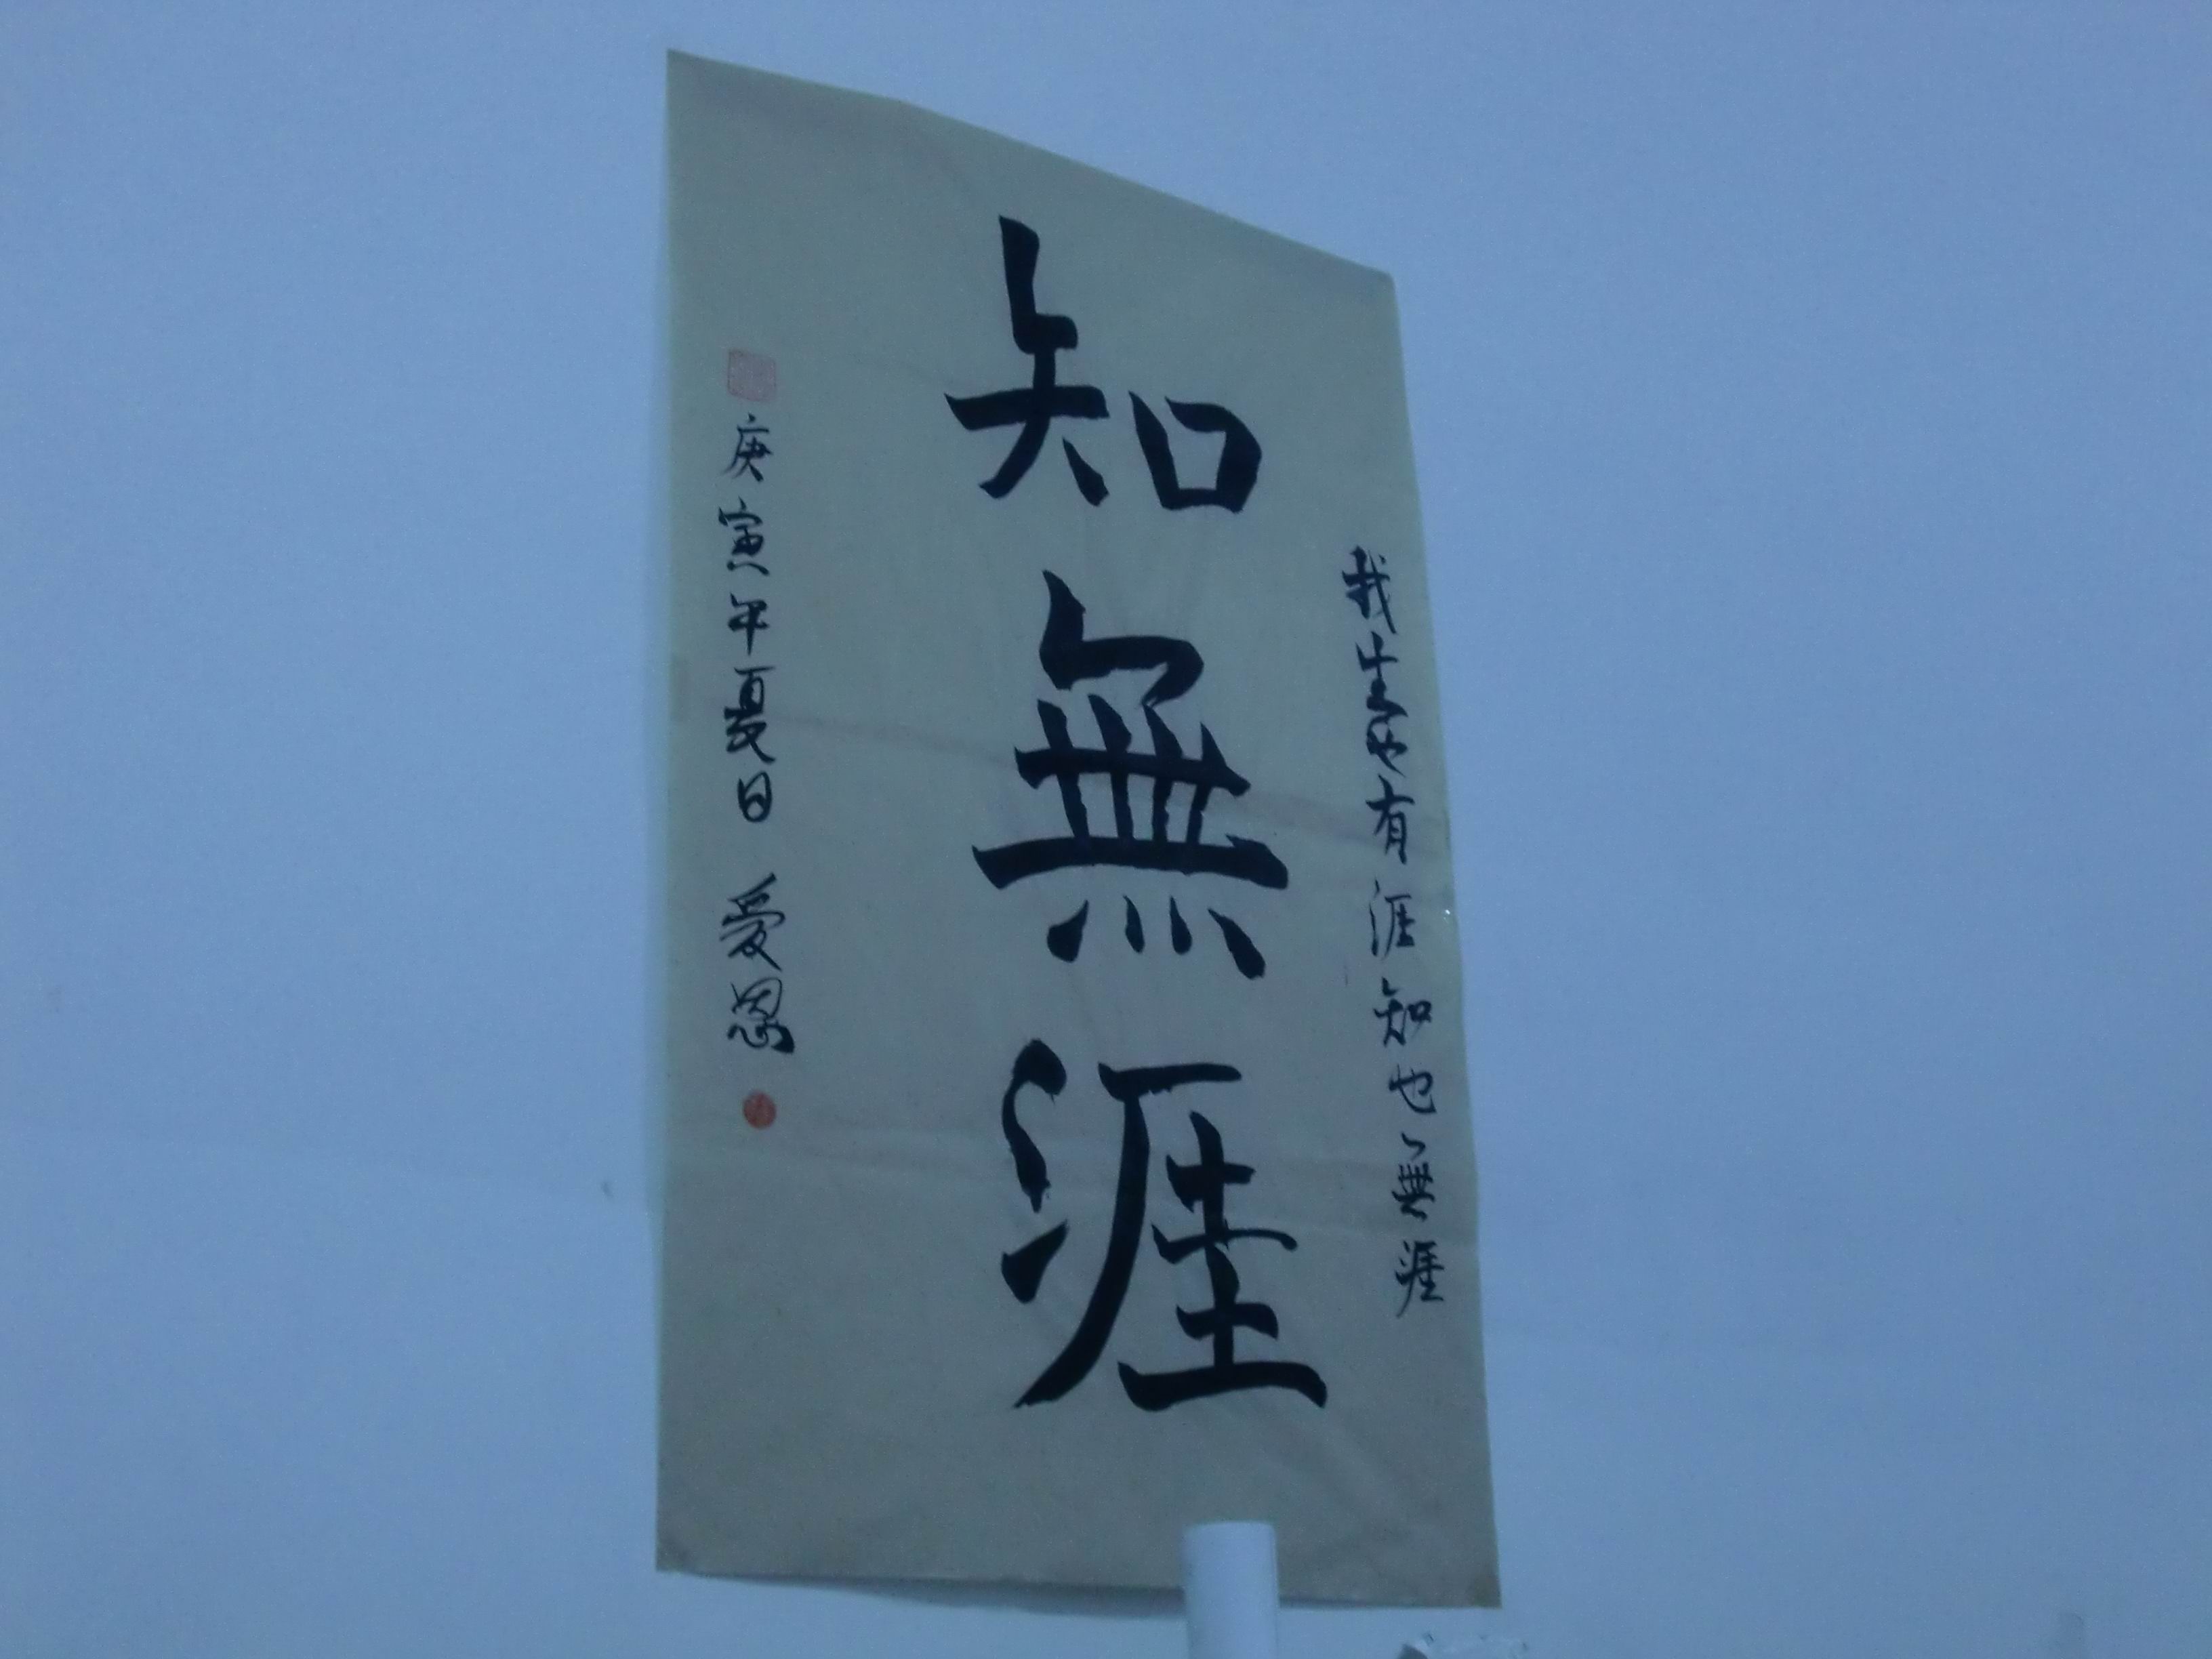 我生也有涯知也無涯
知無涯
庚寅年夏日 爱恩